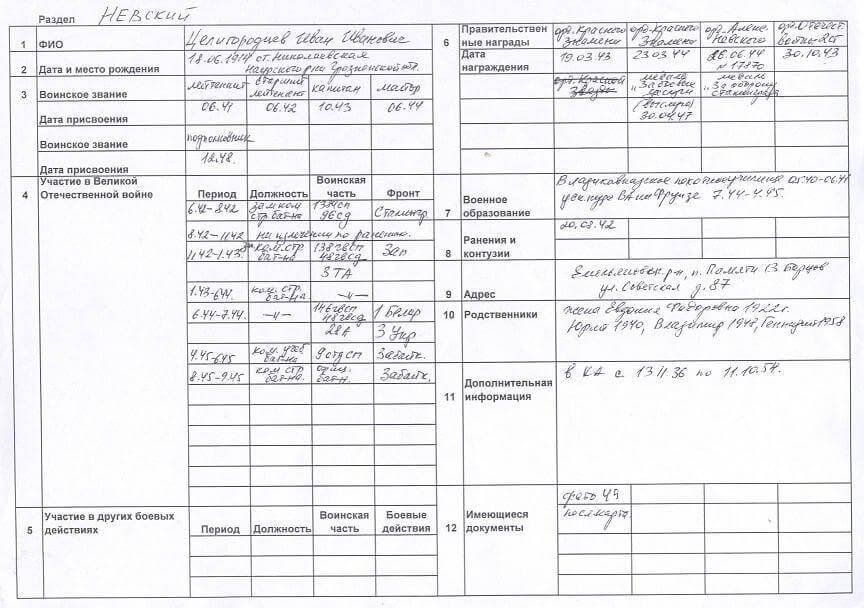 Раздел НЕВСКИЙ
1 ФИО Целигородцев Иван Иванович
2 Дата и место рождения 18.06.1914 ст. Николаевская
Наурского р-на Грозненской обл.
3 Воинское звание лейтенант старший лейтенант капитан майор
Дата присвоения 06.41 06.42 10.43 06.44
Воинское звание подполковник
Дата присвоения 12.48.
4 Участие в Великой
Отечественной войне
Период Должность Воинская часть Фронт
6.42-8.42 зам ком стр. бат-на 96 сд Сталингр
8.42-11.42 на излечении по ранению.
11.42-1.43 ком. стр. бат-на 138 гвсп 48 гвсд Зап
3 ТА
1.43-6.44. ком. стр. бат-на -"-
6.44-7.44. -"- 146 гвсп 48 гвсд 1 Белор
28А 3 Укр
4.45-6.45 ком. учеб бат-на 9 отд сп Забайк.
8.45-9.45 ком стр бат-на бат-н. Забайк.
5 Участие в других боевых
действиях
Период Должность Воинская часть Боевые действия
6 Правительствен
ные награды орд. Красного Знамени орд. Красного Знамени орд. Алекс. Невского орд. Отечест. войны 2 ст
Дата
награждения 19.03.43 23.03.44 26.06.44 N 17870 30.10.43
орд. Красной Звезды медаль „За боевые заслуги (выслуга) 30.04.47 медаль „За оборону Сталинграда
7 Военное
образование Владикавказское пехотное училище 05.40-06.41
уск. курс ВА им Фрунзе 7.44-4.45.
8 Ранения и
контузии 20.08.42
9 Адрес Емельяновск. р-н, п. Памяти 13 Борцов
ул. Советская д. 87
10 Родственники жена Евдокия Федоровна 1922г.
Юрий 1940, Владимир 1948, Геннадий 1958
11 Дополнительная
информация в КА с 13.11.36 по 11.10.54.
12 Имеющиеся
документы фото 45
посл. карта.